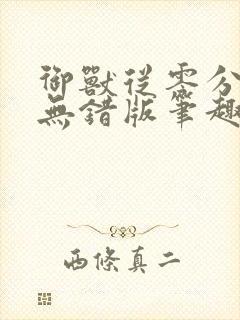 御獸從零分
無錯版筆趣
西條真二